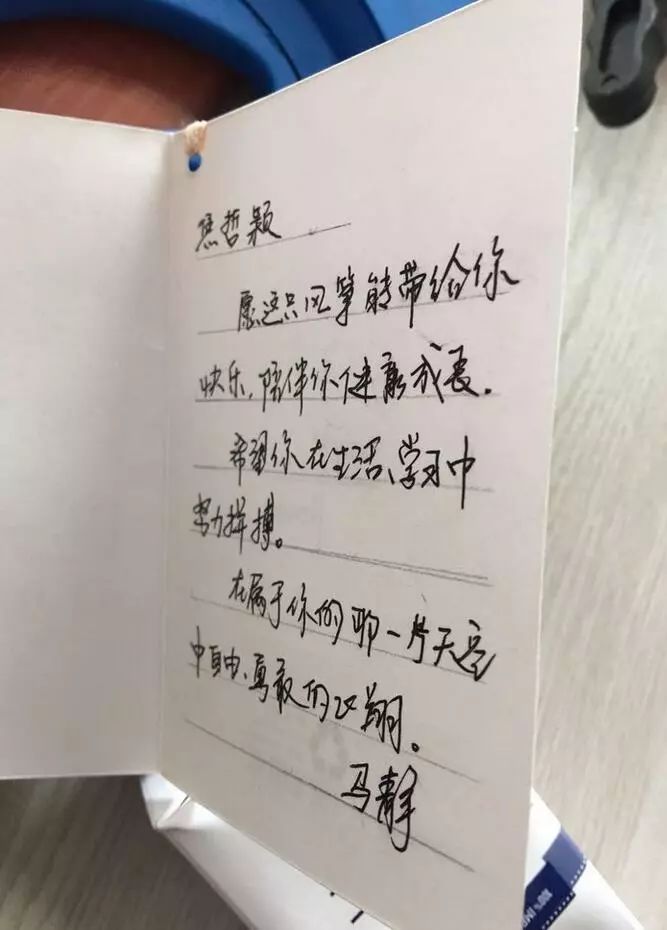 焦哲颖
愿这只风筝能带给你
快乐,陪伴你健康成长.
希望你在生活、学习中
努力拼搏。
在属于你的那一片天空
中自由、勇敢的飞翔。
马静